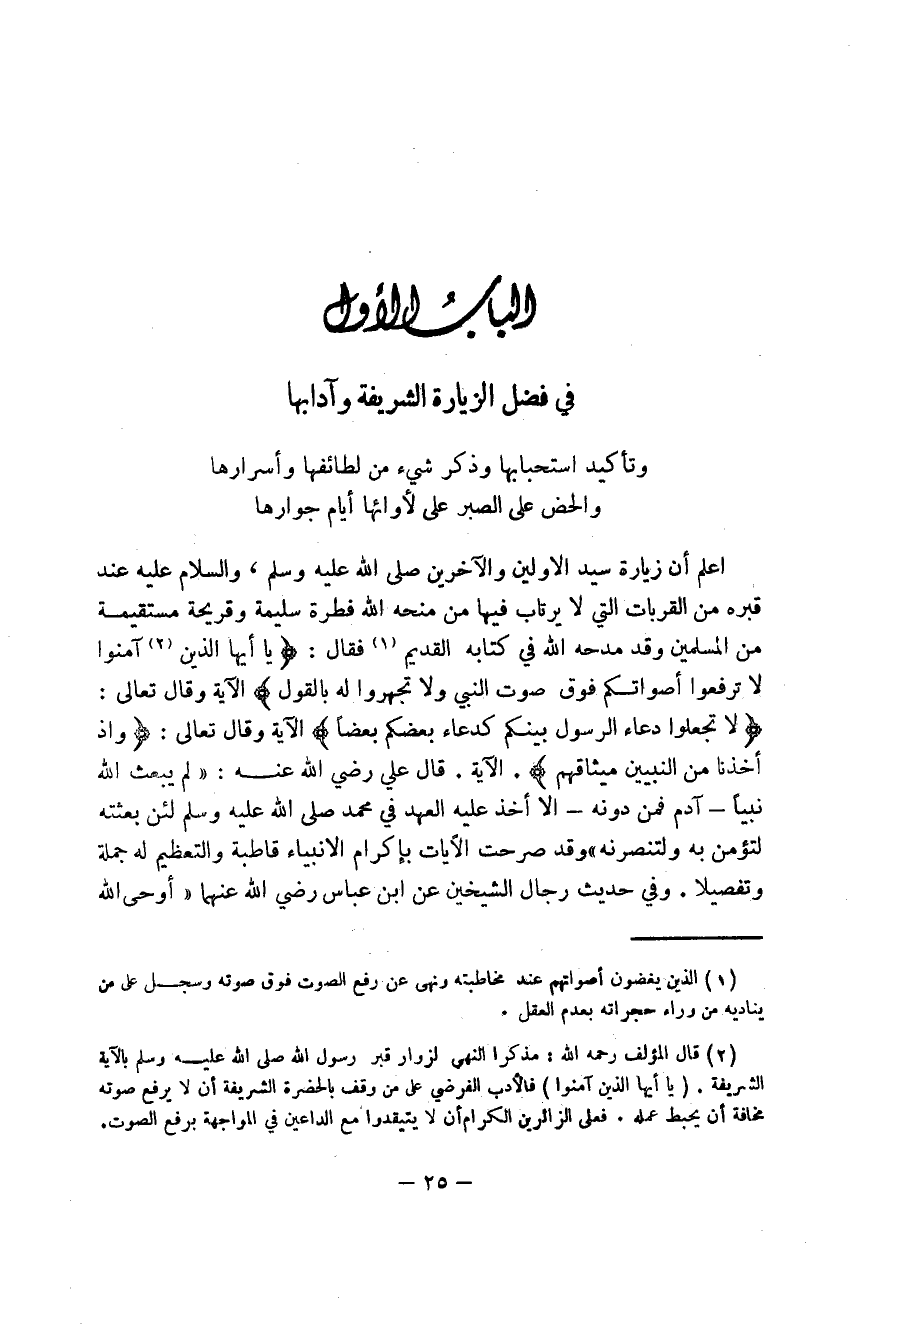 الباب الأول
في فضل الزيارة الشريفة وآدابها
وتأكيد استحبابها وذكر شيء من لطائفها وأسرارها
والحض على الصبر على لأوائها أيام جوارها
اعلم أن زيارة سيد الاولين والآخرين صلى الله عليه وسلم ، والسلام عليه عند
قبره من القربات التي لا يرتاب فيها من منحه الله فطرة سليمة وقريحة مستقيمة
من المسلمين وقد مدحه الله في كتابه القديم (١) فقال : ﴿ يا أيها الذين (٢) آمنوا
لا ترفعوا أصواتكم فوق صوت النبي ولا تجهروا له بالقول ﴾ الآية وقال تعالى :
﴿ لا تجعلوا دعاء الرسول بينكم كدعاء بعضكم بعضاً ﴾ الآية وقال تعالى : ﴿ واذ
أخذنا من النبيين ميثاقهم ﴾ . الآية . قال علي رضي الله عنه : « لم يبعث الله
نبياً – آدم فمن دونه – الا أخذ عليه العهد في محمد صلى الله عليه وسلم لئن بعثته
لتؤمن به ولتنصرنه » وقد صرحت الآيات بإكرام الانبياء قاطبة والتعظيم له جملة
وتفصيلا . وفي حديث رجال الشيخين عن ابن عباس رضي الله عنها « أوحى الله
(١) الذين يغضون أصواتهم عند مخاطبته ونهى عن رفع الصوت فوق صوته وسجل على من
يناديه من وراء حجراته بعدم العقل .
(٢) قال المؤلف رحمه الله : مذكرا النهي لزوار قبر رسول الله صلى الله عليه وسلم بالآية
الشريفة . ( يا أيها الذين آمنوا ) فالأدب الفرضي على من وقف بالحضرة الشريفة أن لا يرفع صوته
مخافة أن يحبط عمله . فعلى الزائرين الكرام أن لا يتيقدوا مع الداعين في المواجهة برفع الصوت.
– ٢٥ –